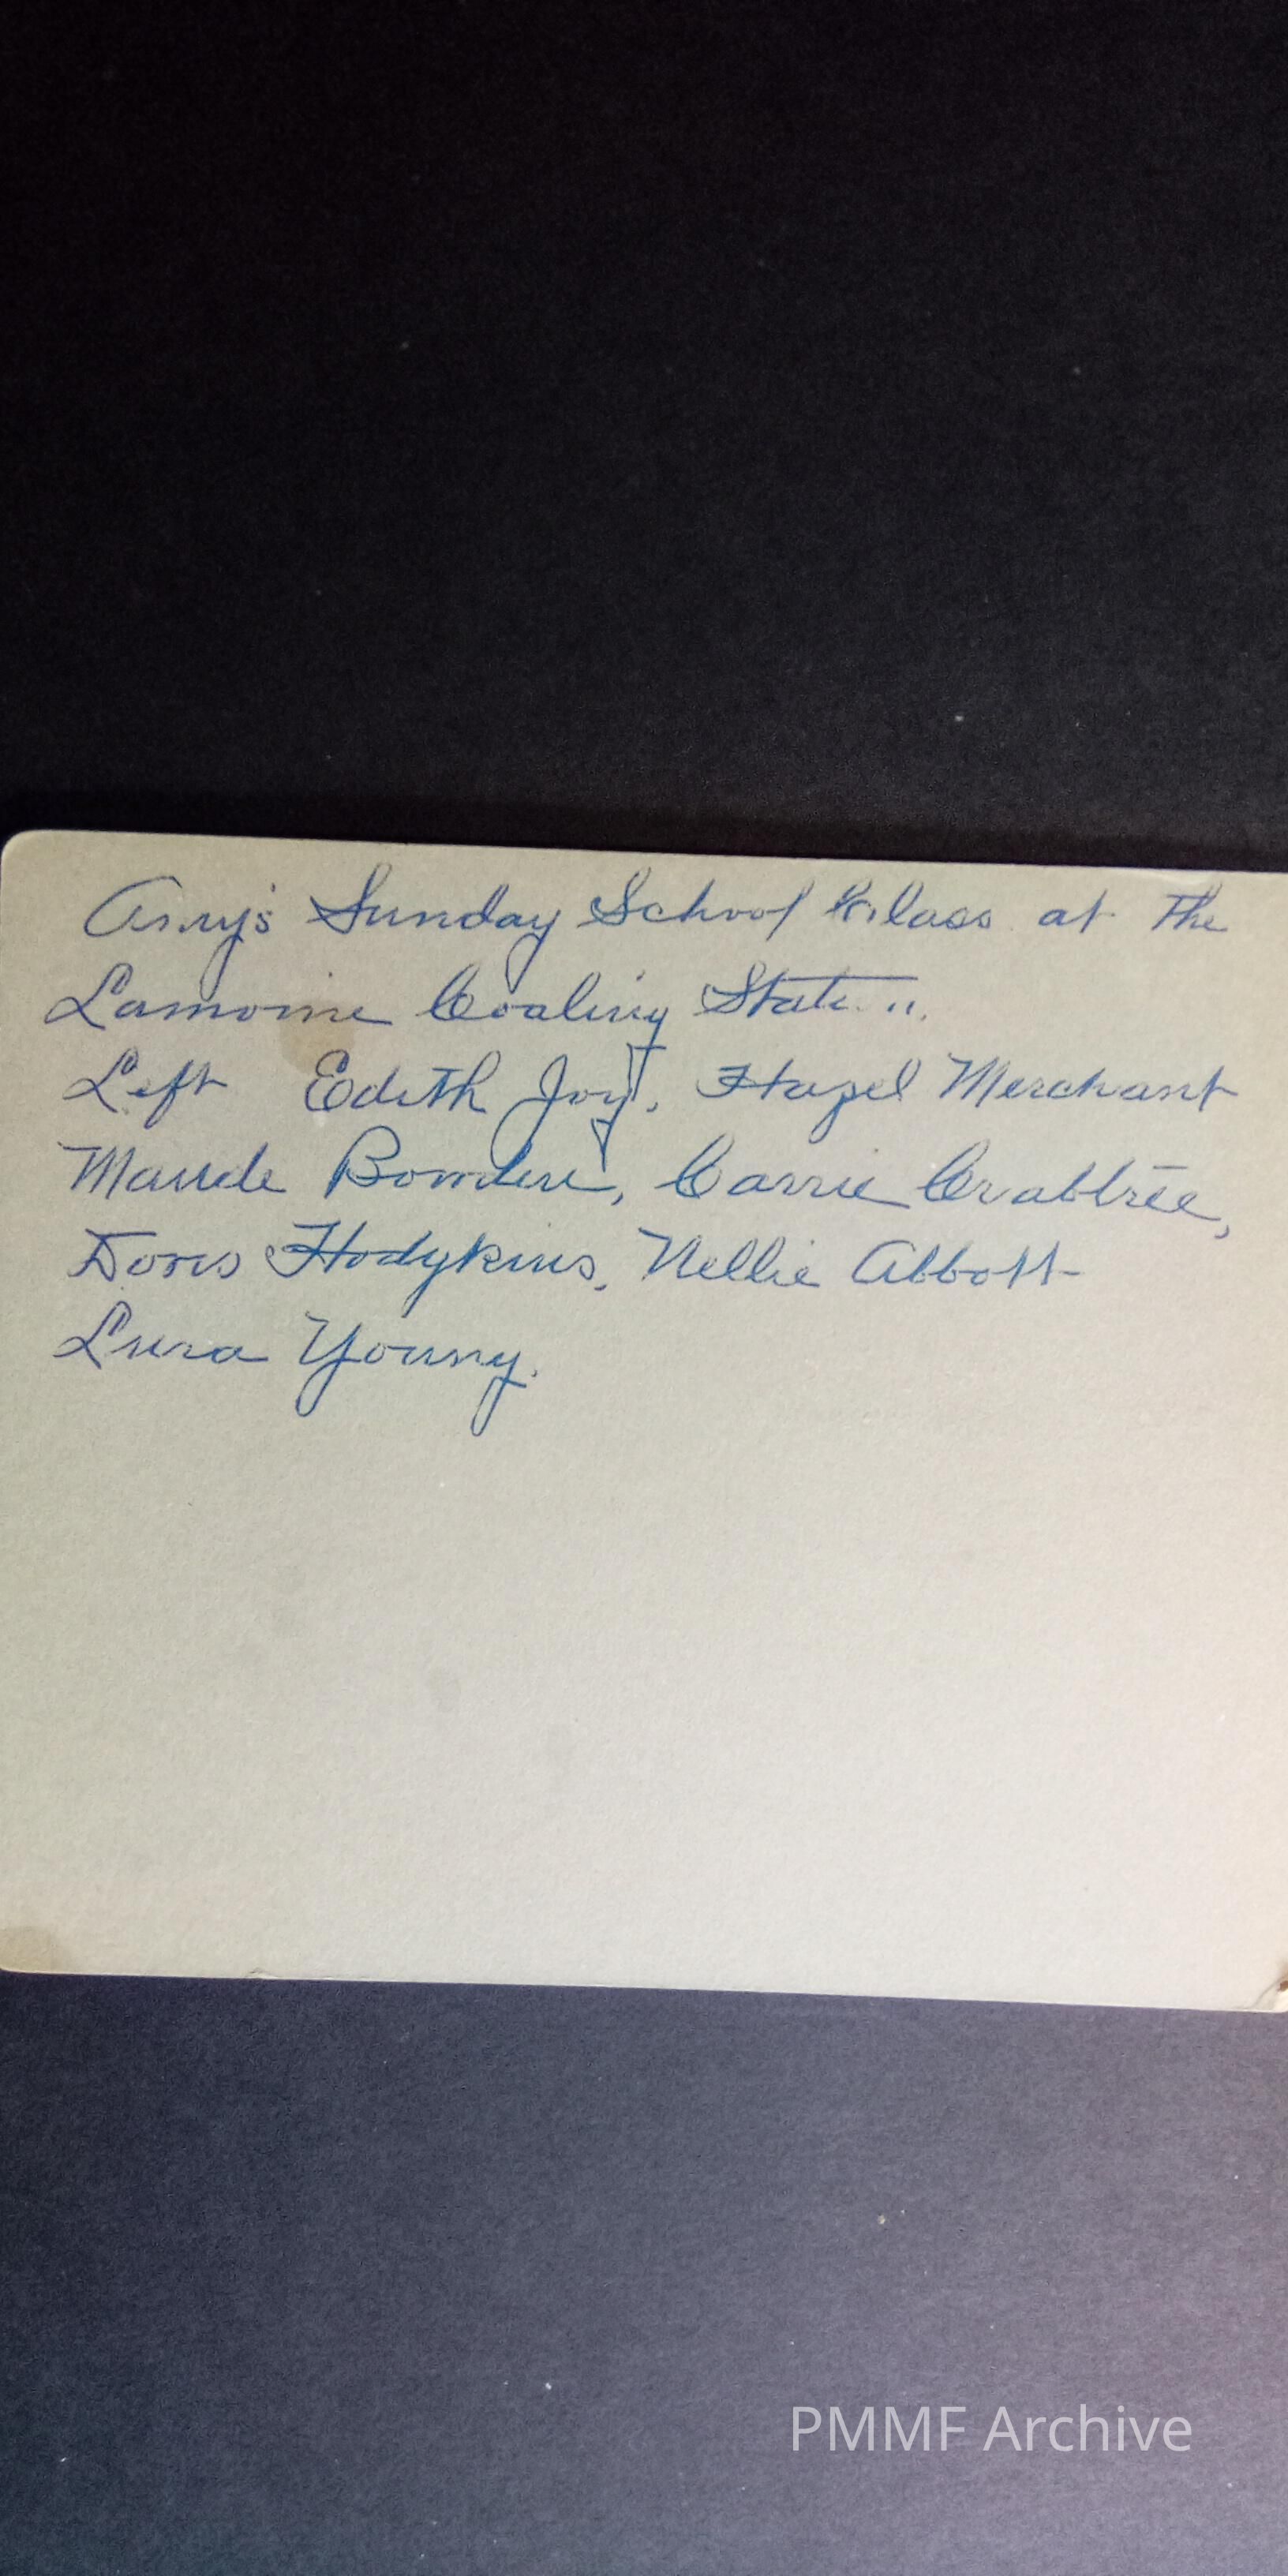 Amy's Sunday School Class at The
Lamoine Coaling State...
Left Edith Joy, Hazel Merchant
Maude Bowden, Carrie Crabtree,
Doris Hodgkins, Nellie Abbott
Lura Young.
PMMF Archive